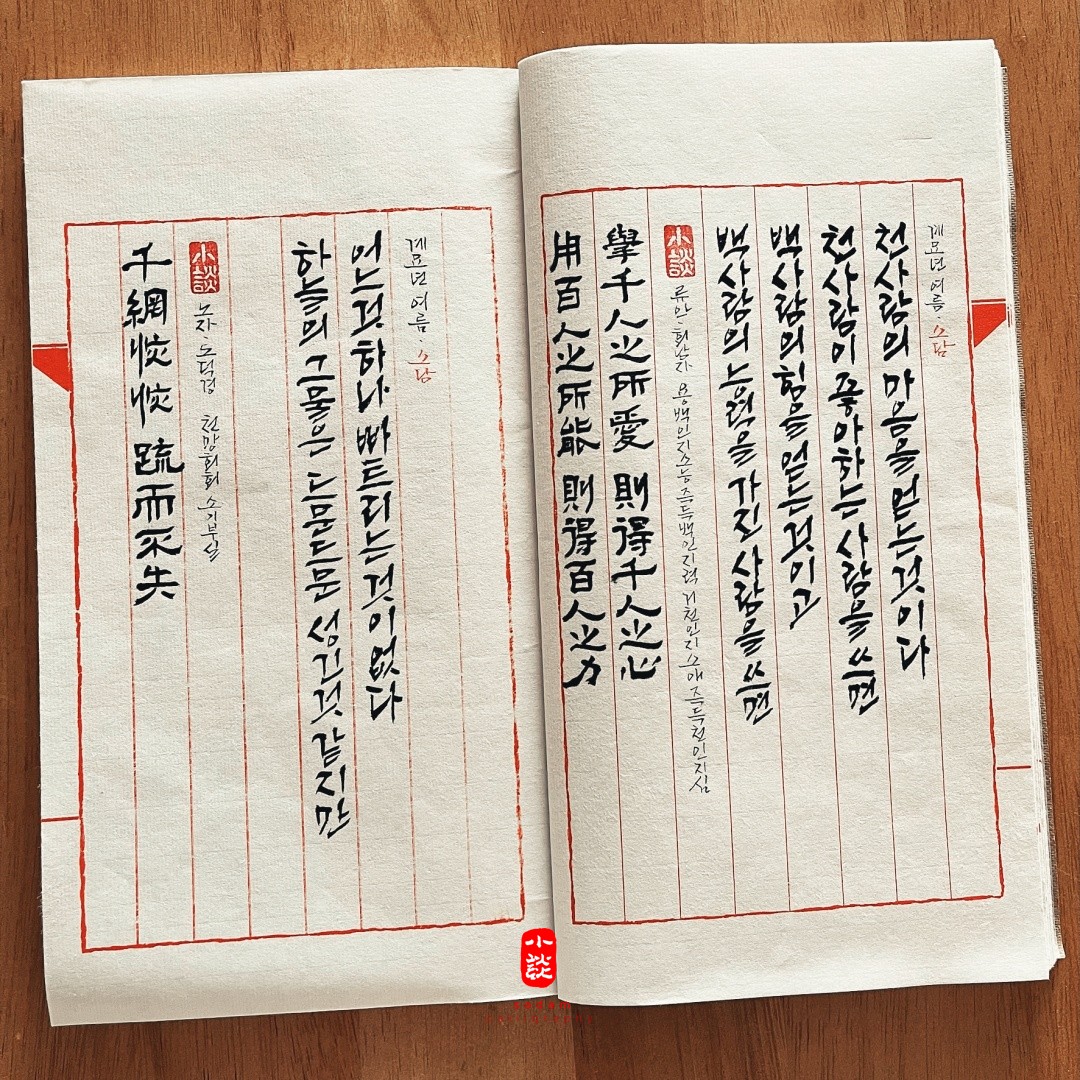 千網恢恢 疏而不失
小談
노자·도덕경 천망회회 소기부실
하늘의 그물은 드문드문 성긴것 같지만
어느것 하나 빠트리는것이 없다
계묘년 여름·소담
用百人之所能 則得百人之力
擧千人之所愛 則得千人之心
小談
류안·회남자 용백인지소능 즉득백인지력 거천인지소애 즉득천인지심
백사람의 능력을 가진 사람을 쓰면
백사람의 힘을 얻는것이고
천사람이 좋아하는 사람을 쓰면
천사람의 마음을 얻는것이다
계묘년 여름·소담
小談